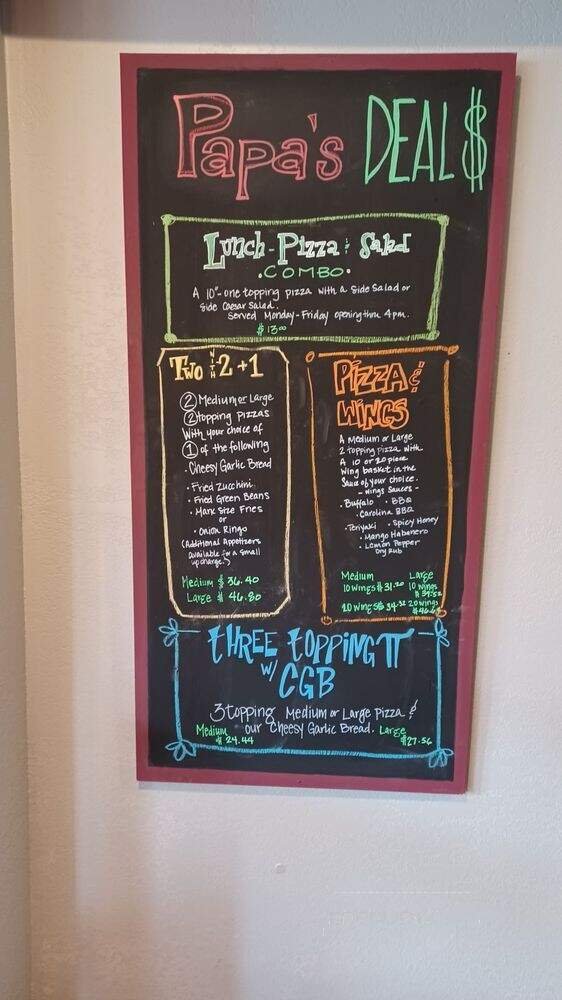 Papa's DEAL$
Lunch-Pizza & Salad
• COMBO •
A 10"-one topping pizza with a side salad or
side caesar salad.
Served Monday-Friday opening thru 4pm.
$13.00
Two WITH 2+1
2 Medium or Large
2 topping Pizzas
With your choice of
1 of the following
• Cheesy Garlic Bread
• Fried Zucchini
• Fried Green Beans
• Marx Size Fries
or
• Onion Rings
(Additional Appetizers
available for a small
upcharge.)
Medium $36.40
Large $46.80
PIZZA &
WINGS
A Medium or Large
2 topping pizza with
A 10 or 20 piece
Wing basket in the
Sauce of your choice.
- Wings Sauces -
• Buffalo • BBQ
• Carolina BBQ
• Teriyaki • Spicy Honey
• Mango Habanero
• Lemon Pepper
Dry Rub
Medium Large
10 wings $31.20 10 wings
20 wings 20 wings
THREE TOPPING π
w/ CGB
3 topping Medium or Large Pizza &
our Cheesy Garlic Bread.
Medium $24.44
Large $27.56